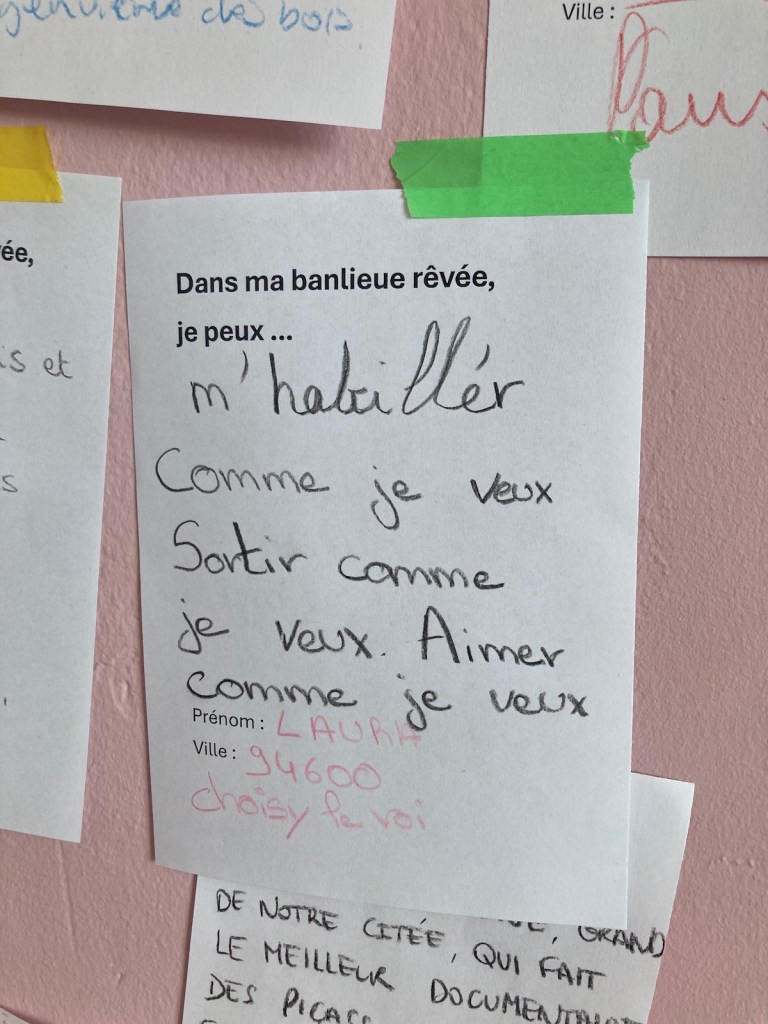 geneviève des bois
Ville :
Paris
ée,
is et
s
Dans ma banlieue rêvée,
je peux ...
m'habillér
Comme je veux
Sortir comme
je veux. Aimer
comme je veux
Prénom : LAURA
Ville : 94600
choisy le roi
GRAND
DE NOTRE CITÉE, QUI FAIT
LE MEILLEUR
DES